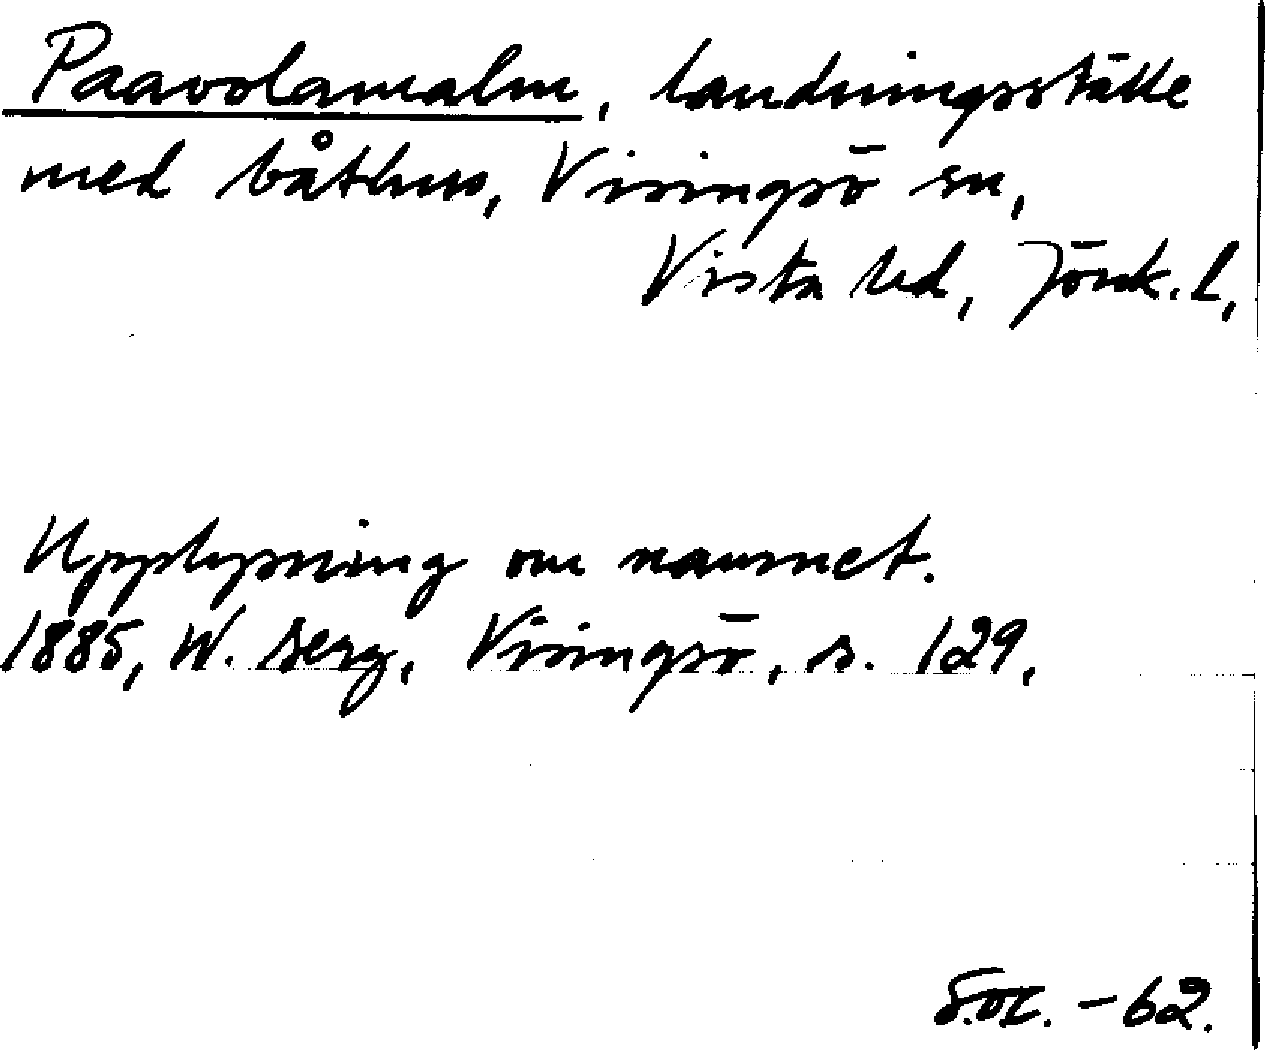 Paavolamalm, landningsställe
med båthus, Visingsö sn,
Vista hd, Jönk. l,
Upplysning om namnet.
1885, W. Berg, Visingsö, s. 129.
S.O.I. - 62.